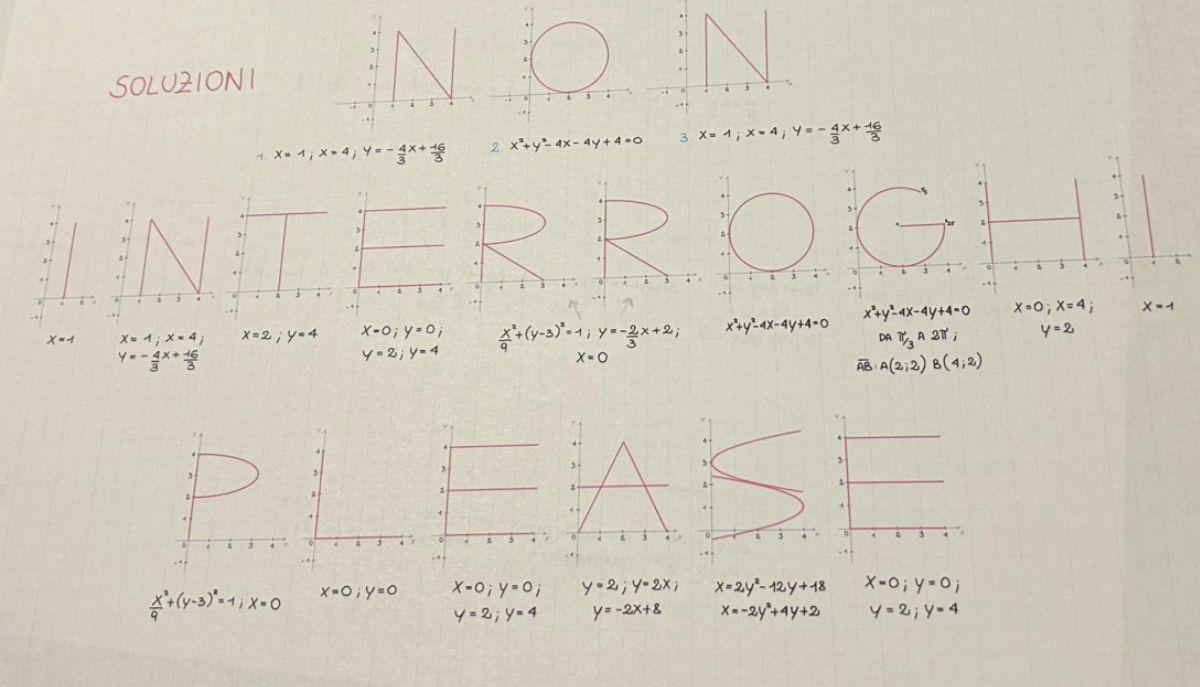 SOLUZIONI
N O N
1. X=1; X=4; Y=-4/3X+16/3
2. X²+Y²-4X-4Y+4=0
3. X=1; X=4; Y=-4/3X+16/3
I N T E R R O G H I
X=1
X=1; X=4;
Y=-4/3X+16/3
X=2; Y=4
X=0; Y=0;
Y=2; Y=4
X²/9+(Y-3)²=1; Y=-2/3X+2;
X=0
X²+Y²-4X-4Y+4=0
X²+Y²-4X-4Y+4=0
DA π/3 A 2π;
AB: A(2;2) B(4;2)
X=0; X=4;
Y=2
X=1
P L E A S E
X²/9+(Y-3)²=1; X=0
X=0; Y=0
X=0; Y=0;
Y=2; Y=4
Y=2; Y=2X;
Y=-2X+8
X=2Y²-12Y+18
X=-2Y²+4Y+2
X=0; Y=0;
Y=2; Y=4